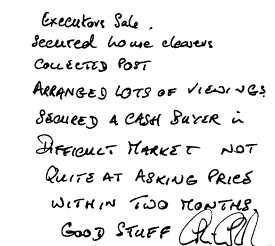 Executors Sale.
Secured house clearers
Collected Post
Arranged lots of viewings
Secured a cash buyer in
Difficult market not
quite at asking price
within two months.
Good stuff